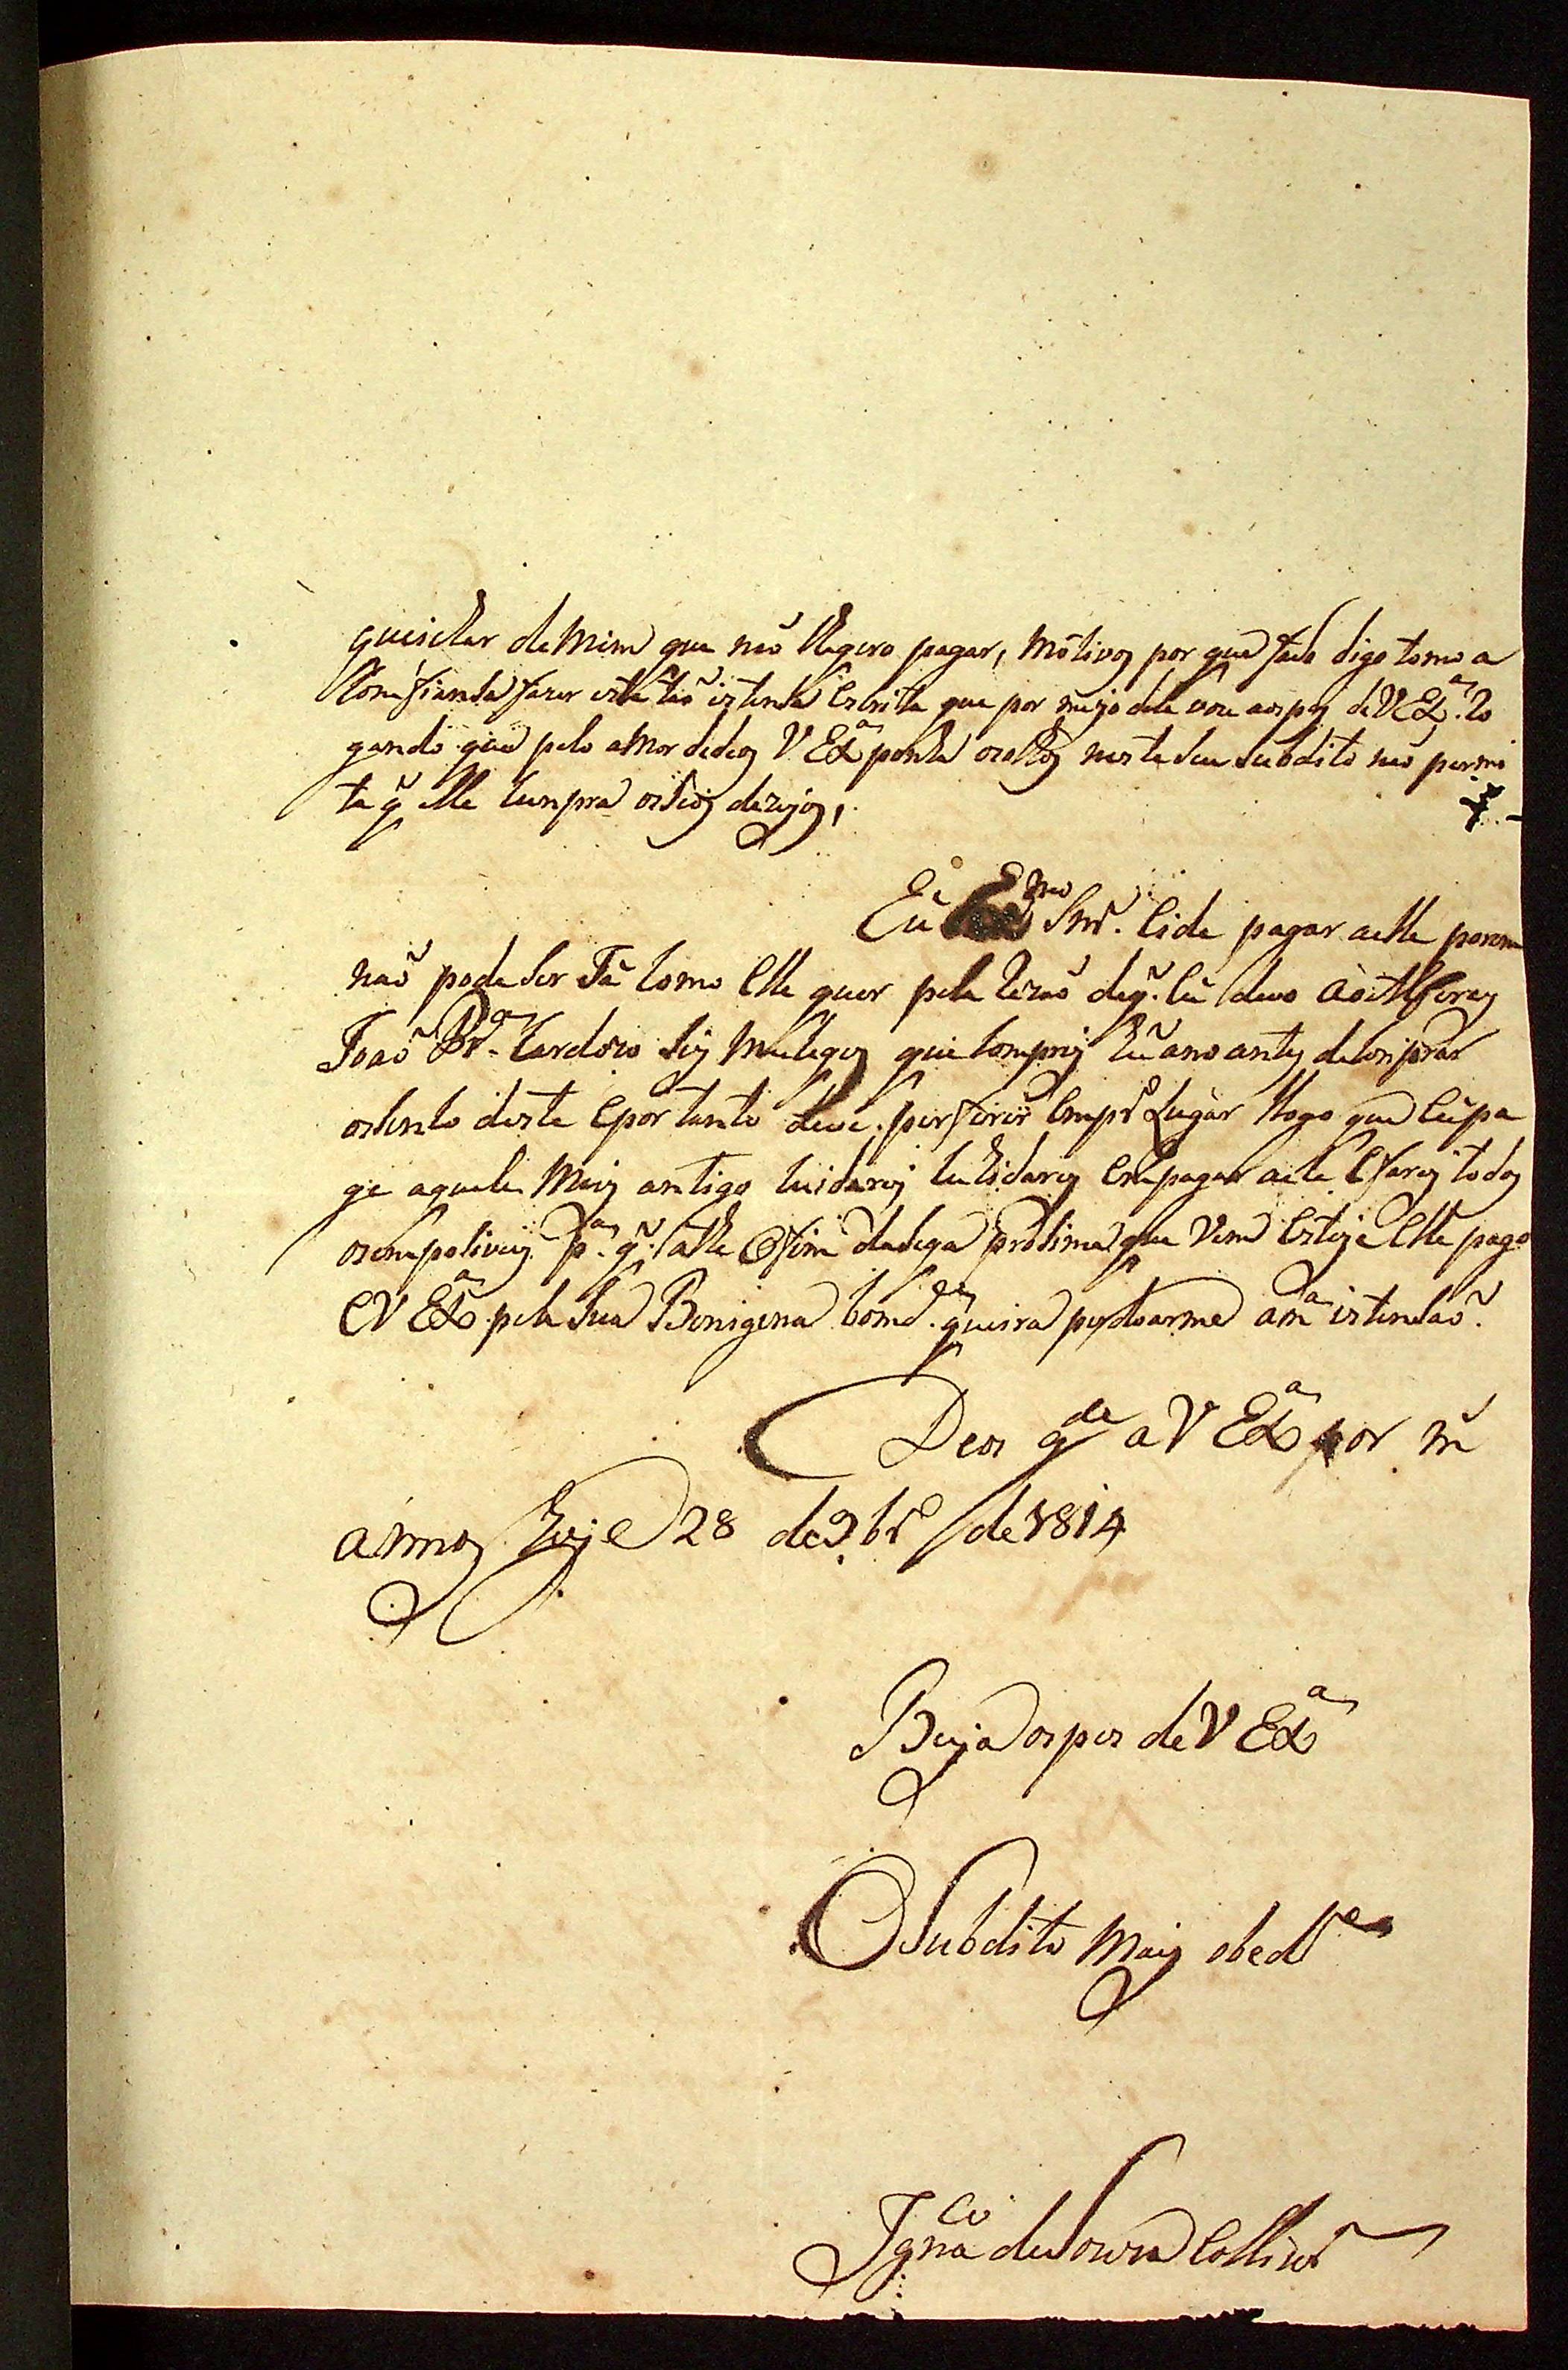 queichar de Mim que não lhequero pagar, Motivos por que faso digo tomo a
Comfiansa fazer esta tão istensa Escrita que por meyo dela vou aospes de V Exª. Ro
gando que pelo amor dedeos V Exª ponha osolhos neste seu subdito não permi
ta q̃ elle cunpra osseos dezejos,
Eu Exmo Snr. hide pagar aelle porem
não pode ser Já como Elle quer pela Rezão deq̃. Eu devo ao Alferes
João Prª Cardozo seis Muleques que comprey hũ ano antes de comprar
oscento deste Epor tanto deve. perferir Em pr.º Lugar Logo que Eu pa
ge aquele Mais antigo cuidarey Em pagar aele Efarey todos
osemposiveis pª. q̃. athe Ofim da sega prosima que vem Esteje Elle pago
E V Exª pela sua Benigena bomd.e queira perdoarme a mª istensão.
Deos g.de a V Exª por m.
annos Hoje 28 de 9br.º de 1814
Beja os pes de V Exª
O Subdito Mais obed.e
Ignacio de Souza